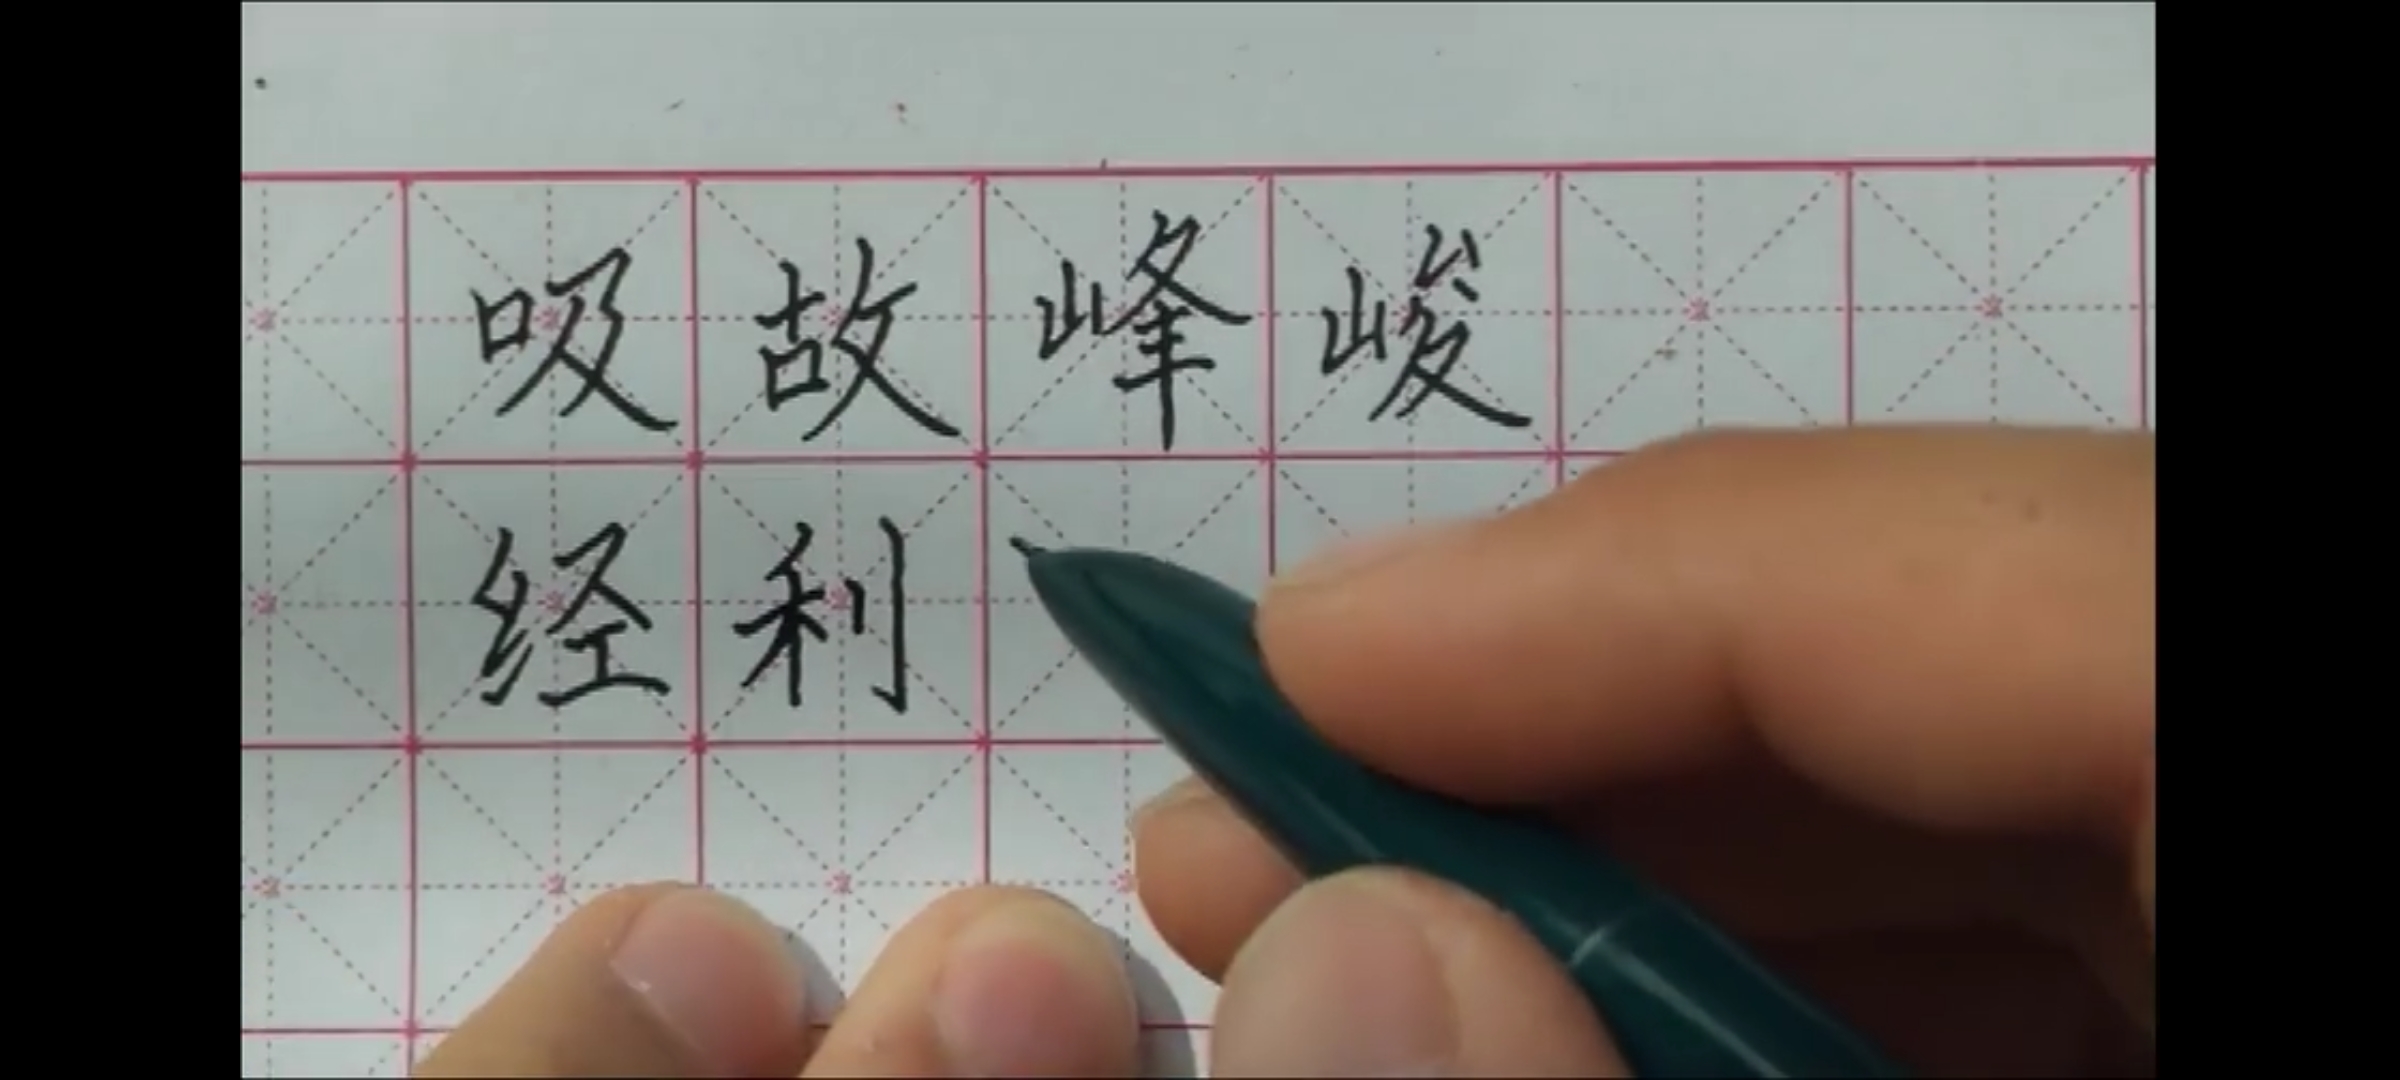 吸故峰峻
经利